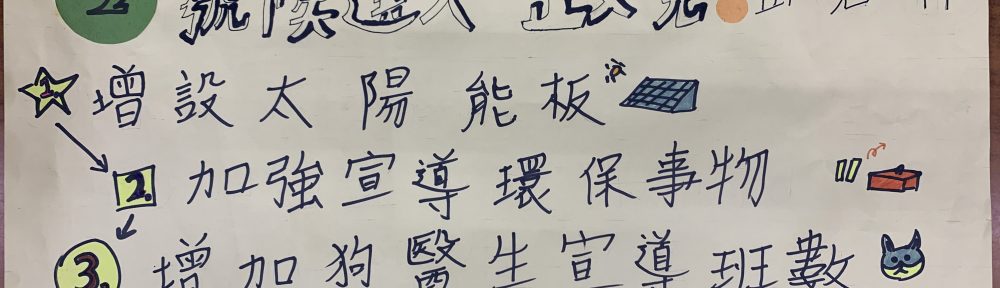 2. 號候選人
1. 增設太陽能板
2. 加強宣導環保事物
3. 增加狗醫生宣導班數